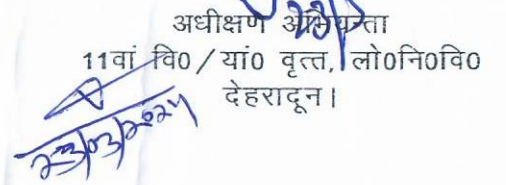 अधीक्षण अभियन्ता
11वां वि0/यां0 वृत्त, लो0नि0वि0
देहरादून।
23/03/2024